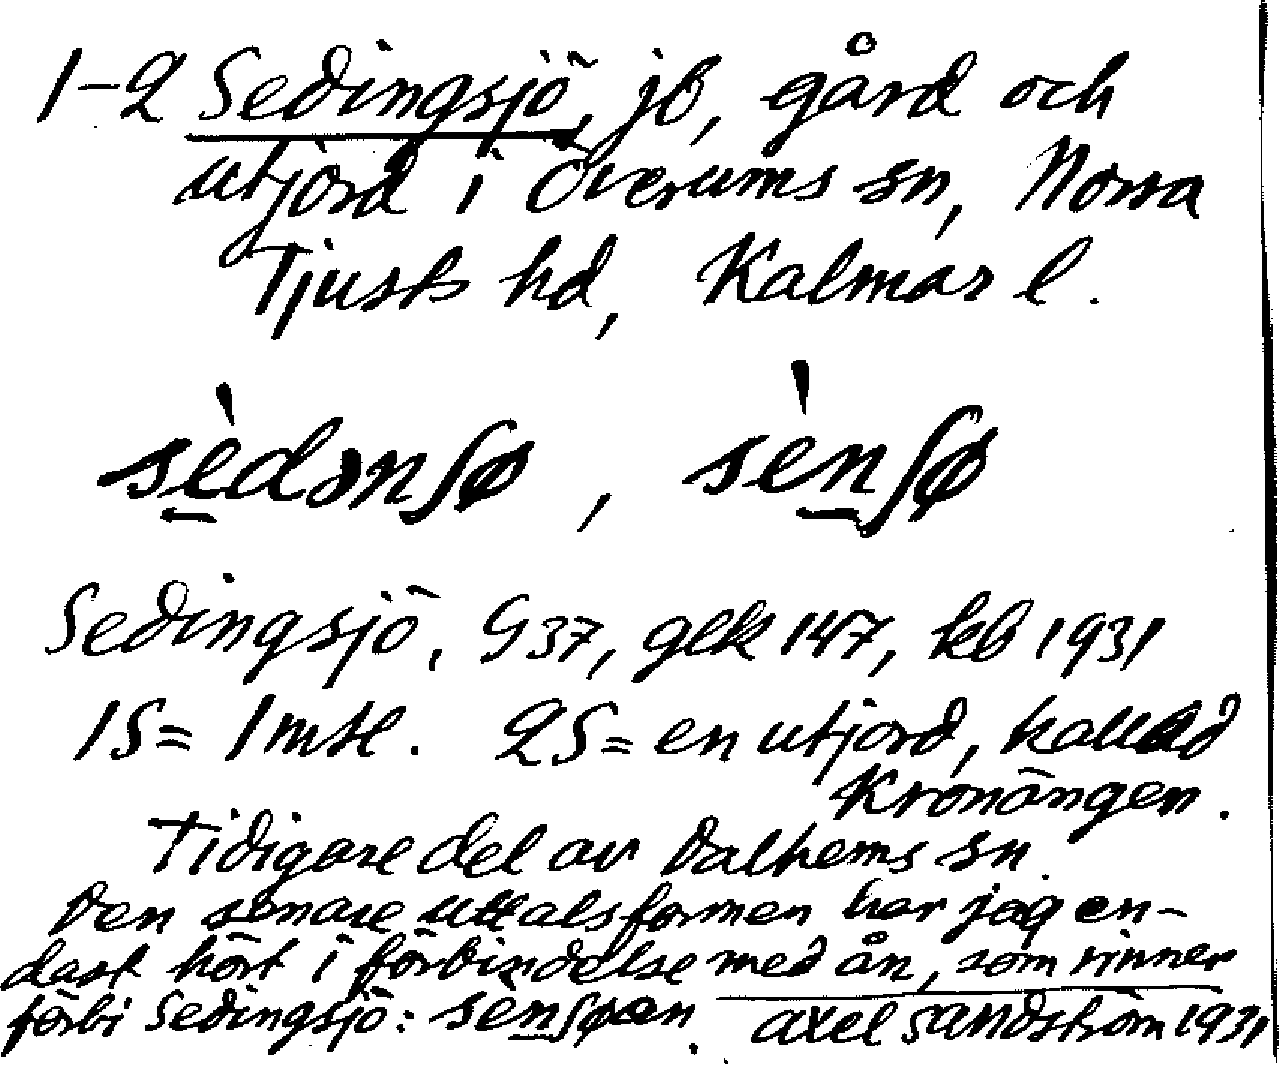 1-2 Sedingsjö, jb, gård och
utjord i Överums sn, Norra
Tjusts hd, Kalmar l.
sèdənʃø, sènʃø
Sedingsjö, G 37, gek 147, kb 1931
1S = 1 mtl. 2S = en utjord, kallad
Kronängen.
Tidigare del av Dalhems sn.
Den senare uttalsformen har jag en-
dast hört i förbindelse med ån, som rinner
förbi Sedingsjö: sènʃøan. Axel Sandström 1931